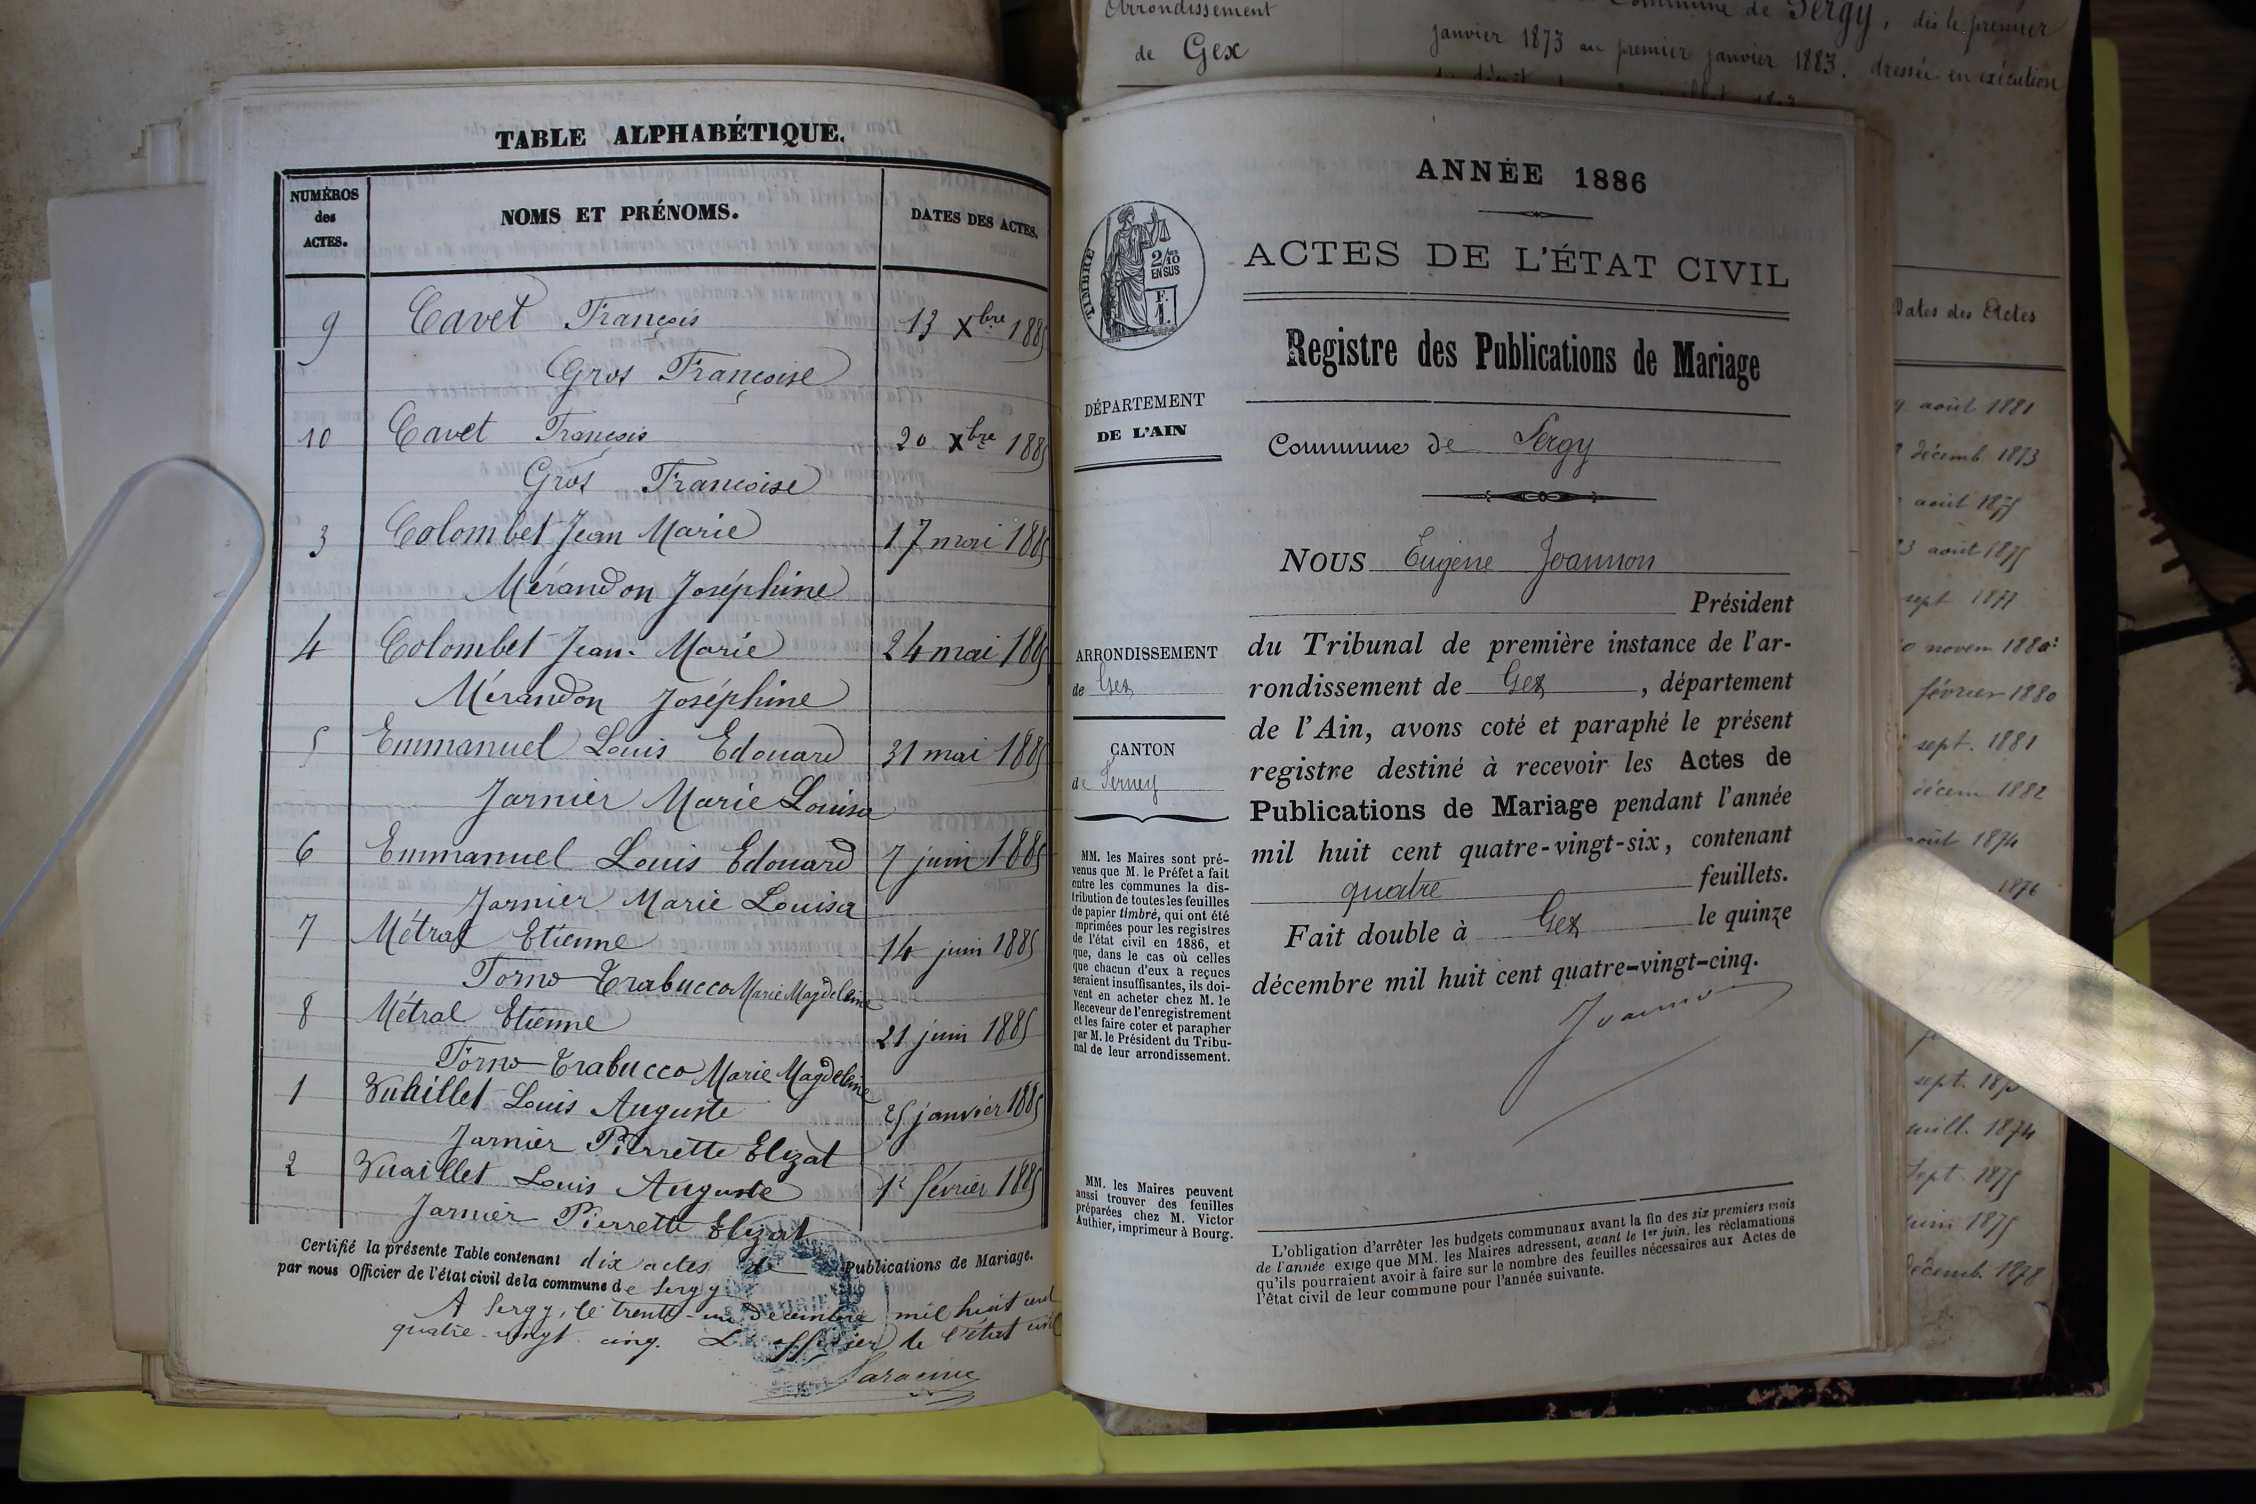 Arrondissement
de Gex
Commune de Sergy, dès le premier
janvier 1873 au premier janvier 1883, dressée en exécution
TABLE ALPHABÉTIQUE.
NUMÉROS
des
ACTES.
NOMS ET PRÉNOMS.
DATES DES ACTES.
9 Cavet François 13 Xbre 1885
Gros Françoise
10 Cavet François 20 Xbre 1885
Gros Françoise
3 Colombet Jean Marie 17 mai 1885
Mérandon Joséphine
4 Colombet Jean-Marie 24 mai 1885
Mérandon Joséphine
5 Emmanuel Louis Edouard 31 mai 1885
Jarnier Marie Louisa
6 Emmanuel Louis Edouard 7 juin 1885
Jarnier Marie Louisa
7 Métral Etienne 14 juin 1885
Torno-Trabucco Marie Magdeleine
8 Métral Etienne 21 juin 1885
Torno-Trabucco Marie Magdeleine
1 Vuaillet Louis Auguste 25 janvier 1885
Jarnier Pierrette Elizat
2 Vuaillet Louis Auguste 1r février 1885
Jarnier Pierrette Elizat
Certifié la présente Table contenant dix actes de Publications de Mariage.
par nous Officier de l'état civil de la commune de Sergy
A Sergy, le trente-un Décembre mil huit cent
quatre-vingt cinq. L'officier de l'état civil
ANNÉE 1886
ACTES DE L'ÉTAT CIVIL
Registre des Publications de Mariage
Commune de Sergy
TIMBRE
2/10
EN SUS
F.
1.
DÉPARTEMENT
DE L'AIN
ARRONDISSEMENT
de Gex
CANTON
de Ferney
MM. les Maires sont pré-
venus que M. le Préfet a fait
entre les communes la dis-
tribution de toutes les feuilles
de papier timbré, qui ont été
imprimées pour les registres
de l'état civil en 1886, et
que, dans le cas où celles
que chacun d'eux a reçues
seraient insuffisantes, ils doi-
vent en acheter chez M. le
Receveur de l'enregistrement
et les faire coter et parapher
par M. le Président du Tribu-
nal de leur arrondissement.
MM. les Maires peuvent
aussi trouver des feuilles
préparées chez M. Victor
Authier, imprimeur à Bourg.
NOUS Eugène Joannon
Président
du Tribunal de première instance de l'ar-
rondissement de Gex, département
de l'Ain, avons coté et paraphé le présent
registre destiné à recevoir les Actes de
Publications de Mariage pendant l'année
mil huit cent quatre-vingt-six, contenant
quatre feuillets.
Fait double à Gex le quinze
décembre mil huit cent quatre-vingt-cinq.
L'obligation d'arrêter les budgets communaux avant la fin des six premiers mois
de l'année exige que MM. les Maires adressent, avant le 1er juin, les réclamations
qu'ils pourraient avoir à faire sur le nombre des feuilles nécessaires aux Actes de
l'état civil de leur commune pour l'année suivante.
Dates des Actes
août 1881
décemb. 1873
août 1875
août 1875
sept 1877
novem 1880
février 1880
sept. 1881
décem 1882
août 1874
1876
sept.
juill. 1874
sept 1875
juin 1875
décemb. 1878